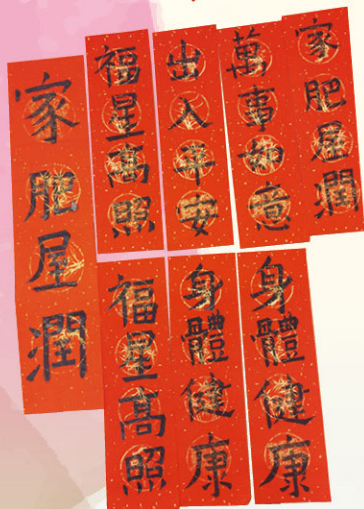 家肥屋潤
福星高照
出入平安
萬事如意
家肥屋潤
福星高照
身體健康
身體健康